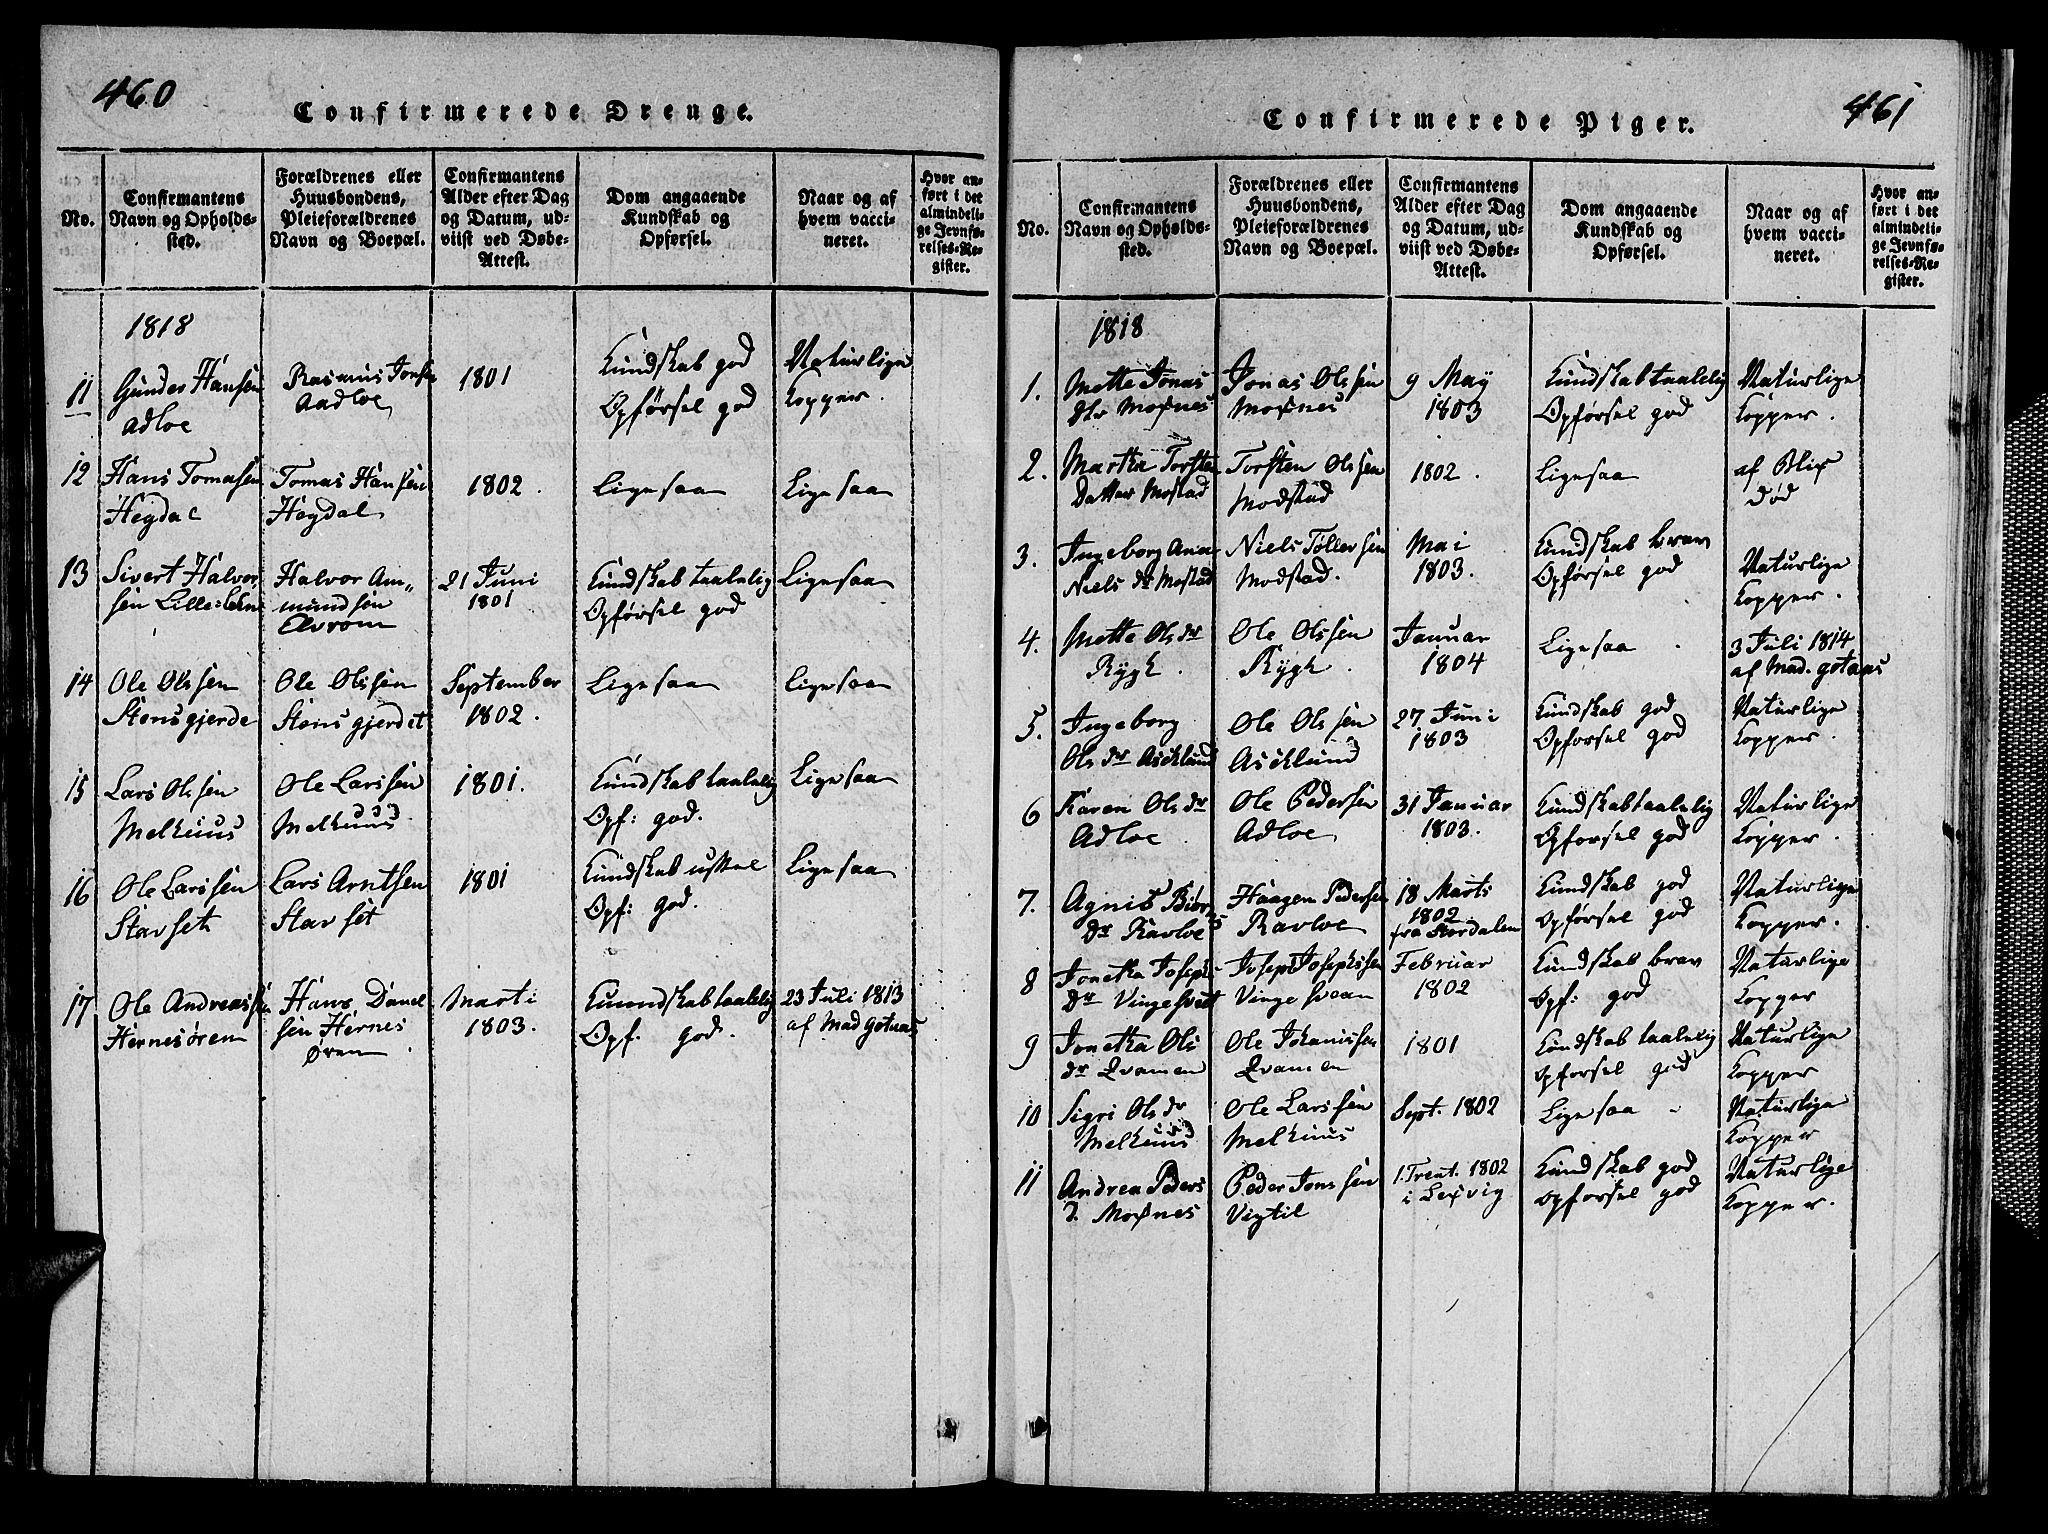 460
Confirmerede Drenge.
No.
Confirmantens
Navn og Opholds-
sted.
Forældrenes eller
Huusbondens,
Pleieforældrenes
Navn og Boepæl.
Confirmantens
Alder efter Dag
og Datum, ud-
viist ved Døbe-
Attest.
Dom angaaende
Kundskab og
Opførsel.
Naar og af
hvem vacci-
neret.
Hvor an-
ført i det
almindeli-
ge Jevnfø-
relses-Re-
gister.
1818
11
Gunder Hansen
Adloe
Rasmus Jonsen
Aadloe
1801
Kundskab god
Opførsel god
Naturlige
Kopper.
12
Hans Tomasen
Hegdal
Tomas Hansen
Høgdal
1802.
Ligesaa
Ligesaa
13
Sivert Halvor
sen Lille-
Halvor Am„
mundsen
Elvrom
21 Juni
1801
Kundskab taalelig
Opførsel god
Ligesaa
14
Ole Olssen
Stensgjerde
Ole Olssen
Stensgjerdet
September
1802.
Ligesaa
Ligesaa
15
Lars Olssen
Melhuus
Ole Larssen
Melhuus
1801.
Kundskab taalelig
Opf: god.
Ligesaa
16
Ole Larssen
Stavset
Lars Arntsen
Stavset
1801
Kundskab ussel
Opf: god.
Ligesaa
17
Ole Andreassen
Hernesören
Hans Danel
sen Hernes
Øren
Marti
1803.
Kundskab taalelig
Opf. god.
23 Juli 1813
af Mad Gotaas
461
Confirmerede Piger.
No.
Confirmantens
Navn og Opholds-
sted.
Forældrenes eller
Huusbondens,
Pleieforældrenes
Navn og Boepæl.
Confirmantens
Alder efter Dag
og Datum, ud-
viist ved Døbe-
Attest.
Dom angaaende
Kundskab og
Opførsel.
Naar og af
hvem vacci-
neret.
Hvor an-
ført i det
almindeli-
ge Jevnfø-
relses-Re-
gister.
1818
1.
Mette Jonas
dtr Moxnes
Jonas Olssen
Moxnes
9 May
1803
Kundskab taalelig
Opførsel god
Naturlige
Kopper.
2.
Martha Torsten
Datter Mostad
Torsten Olssen
Modstad
1802.
Ligesaa
af Blix
død
3.
Ingeborg Ana
Niels dr Mostad
Niels Tøllersen
Modstad.
Mai
1803.
Kundskab brav
Opførsel god
Naturlige
Kopper.
4.
Mette Ols dr
Rygh
Ole Olssen
Rygh.
Januar
1804
Ligesaa
3 Juli 1814
af Mad. Gotaas
5.
Ingeborg
Ols dr Asiklund
Ole Olssen
Asiklund
27 Juni
1803
Kundskab god
Opforsel god
Naturlige
Kopper.
6
Karen Ols dr
Adloe
Ole Pedersen
Adloe
31 Januar
1803.
Kundskab taalelig
Opforsel god
Naturlige
Kopper.
7.
Agnis Biørns
dr Ravloe
Haagen Pedersen
Ravloe
18 Marts
1802
fra Stordalen
Kundskab god
Opførsel god
Naturlige
Kopper.
8
Jonetha Josephs
dr
Joseph Josephsen
Februar
1802
Kundskab brav
Opf: god
Naturlige
Kopper
9
Jonetha Ols
dr Qvamen
Ole Johanissen
Qvamen
1801
Kundskab taalelig
Opforsel god
Naturlige
Kopper
10
Sigri Ols dr
Melhuus
Ole Larssen
Melhuus
Sept. 1802
Ligesaa
Naturlige
Kopper
11
Andrea Peders
d. Moxnes
Peder Jonssen
Vigtil
1. Trent. 1802
i Lexvig
Kundskab god
Opforsel god
Naturlige
Kopper.